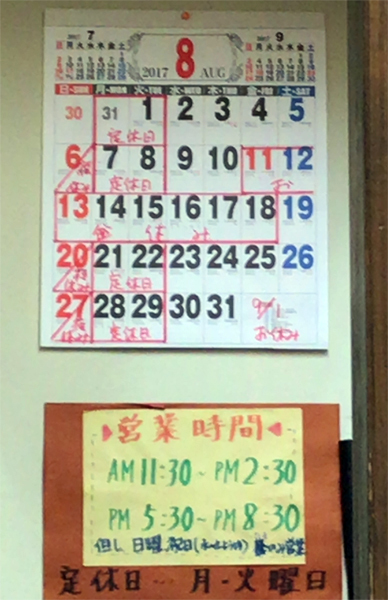 2017 7
2017 8 AUG
2017 9
日・SUN 月・MON 火・TUE 水・WED 木・THU 金・FRI 土・SAT
30 31 1 2 3 4 5
定休日
6 7 8 9 10 11 12
休み 定休日 お
13 14 15 16 17 18 19
休み
20 21 22 23 24 25 26
休み 定休日
27 28 29 30 31 9/1
休み 定休日 お休み
営業時間
AM 11:30~PM 2:30
PM 5:30~PM 8:30
但し、日曜、祝日 営業
定休日…月・火曜日